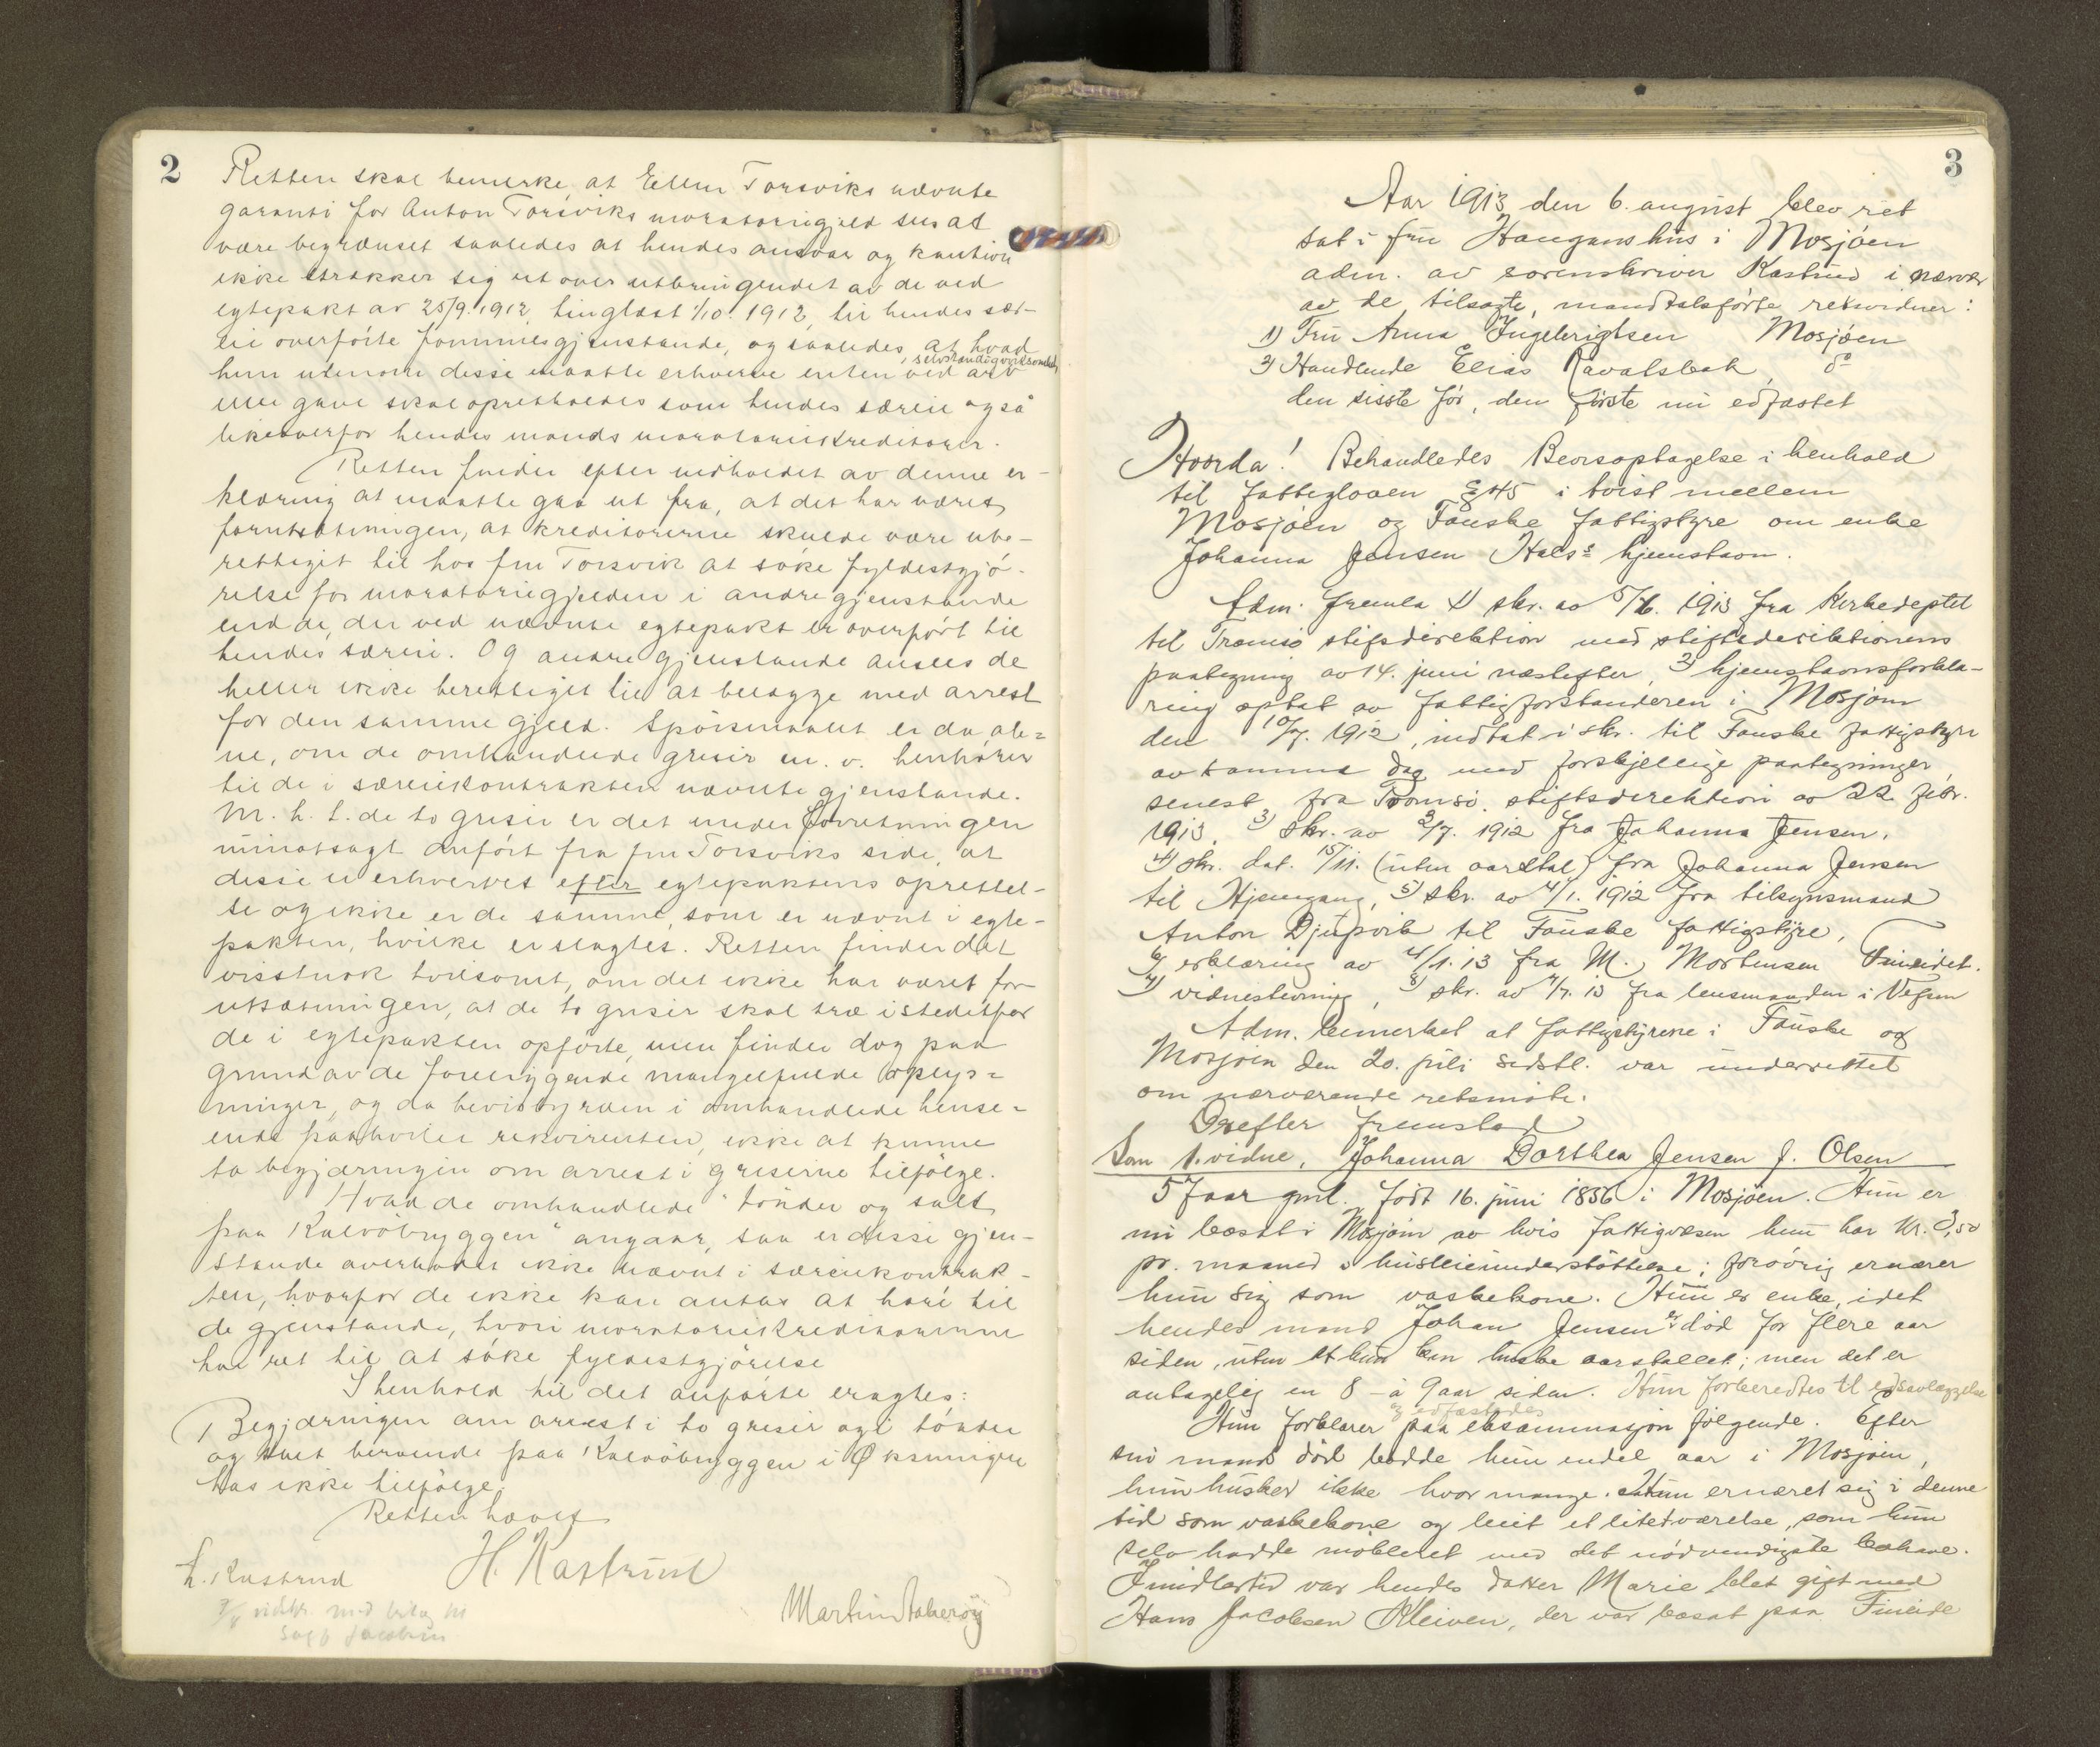 2
Retten skal bemerke, at Ellen Torsviks nævnte
garanti for Anton Torsviks moratoriegjeld sees at
være begrænset saaledes at hendes ansvar og kaution
ikke strækker sig ut over utbringendet av de ved
egtepakt av 25/9. 1912, tinglæst 1/10. 1912, til hendes sær-
eie overførte formuesgjenstande, og saaledes, at hvad
hun utenom disse maatte erhverve enten ved arv, selvstændig virksomhet,
eller gave skal opretholdes som hendes særeie også
likeoverfor hendes mands moratoriekreditorer.
Retten finder efter indholdet av denne er-
klæring at maatte gaa ut fra, at det har været
forutsætningen, at kreditorerne skulde være ube-
rettiget til hos fru Torsvik at søke fyldestgjø-
relse for moratoriegjelden i andre gjenstande
end de, der ved nævnte egtepakt er overført til
hendes særeie. Og andre gjenstande ansees de
heller ikke berettiget til at belægge med arrest
for den samme gjeld. Spørsmaalet er da ale-
ne, om de omhandlede griser m. v. henhører
til de i særeiekontrakten nævnte gjenstande.
M. h. t. de to griser er det under forretningen
uimotsagt anført fra fru Torsviks side, at
disse er erhvervet efter egtepaktens oprettel-
se og ikke er de samme, som er nævnt i egte-
pakten, hvilke er slagtet. Retten finder det
visstnok tvilsomt, om det ikke har været for-
utsætningen, at de to griser skal træ istedetfor
de i egtepakten opførte, men finder dog paa
grund av de foreliggende mangelfulde oplys-
ninger, og da bevisbyrden i omhandlede hense-
ende paahviler rekvirenten, ikke at kunne
ta begjæringen om arrest i griserne tilfølge.
Hvad de omhandlede "tønder og salt
paa Kalvöbryggen" angaar, saa er disse gjen-
stande overhodet ikke nævnt i særeiekontrak-
ten, hvorfor de ikke kan antas at høre til
de gjenstande, hvori moratoriekreditorerne
har ret til at søke fyldestgjørelse
I henhold til det anførte eragtes:
Begjæringen om arrest i to griser og i tønder
og salt beroende paa Kalvöbryggen i Øksningen
tas ikke tilfølge.
Retten hævet
H. Kastrud
H. Kastrud
Martin Aakerøy
3
Aar 1913 den 6. august blev ret
sat i fru Haugans hus i Mosjøen
adm. av sorenskriver Kastrud i nærvær
av de tilsagte, mandtalsførte retsvidner:
1) Fru Anna Ingebrigtsen Mosjøen
2) Handlende Elias Ravatsbak, do
den sisste før, den første nu edfæstet
Hvorda! Behandledes Bevisoptagelse i henhold
til fattigloven § 45 i tvist mellem
Mosjøen og Fauske fattigstyre om enke
Johanna Jensen Hals's hjemstavn.
Adm. fremla 1) skr. av 5/6. 1913 fra Kirkedeptet
til Tromsø stiftsdirektion med stiftsdirektionens
paategning av 14. juni næstefter, 2) hjemstavnsforkla-
ring optat av fattigforstanderen i Mosjøen
den 10/7. 1912, indtat i skr. til Fauske fattigstyre
av samme dag med forskjellige paategninger,
senest fra Tromsø stiftsdirektion av 22 febr.
1913, 3) skr. av 3/7. 1912 fra Johanna Jensen,
4) skr. dat. 15/11. (uten aarstal) fra Johanna Jensen
til Hjemgang, 5) skr. av 4/1. 1912 fra tilsynsmand
Anton Djupvik til Fauske fattigstyre,
6) erklæring av 4/1. 13 fra M. Mortensen Finneidet.
7) vidnestevning, 8) skr. av 7/7. 13 fra lensmanden i Vefsen
Adm. bemerket at fattigstyrene i Fauske og
Mosjøen den 20. juli sidstl. var underrettet
om nærværende retsmøte.
Derefter fremstod
Som 1. vidne, Johanna Dorthea Jensen f. Olsen
57 aar gml. født 16. juni 1856 i Mosjøen. Hun er
nu bosat i Mosjøen av hvis fattigvæsen hun har kr. 3,50
pr. maaned i husleieunderstøttelse; forøvrig ernærer
hun sig som vaskekone. Hun er enke, idet
hendes mand Johan Jensen er død for flere aar
siden, uten at hun kan huske aarstallet; men det er
antagelig en 8 - à 9 aar siden. Hun forberedtes til edsavlæggelse
og edfæstedes
Hun forklarer paa eksaminasjon følgende. Efter
sin mands død bodde hun endel aar i Mosjøen,
hun husker ikke hvor mange. Hun ernæret sig i denne
tid som vaskekone og leiet et litet værelse, som hun
selv hadde møbleret med det nødvendigste bohave.
Imidlertid var hendes datter Marie blet gift med
Hans Jacobsen Kleiven, der var bosat paa Fineide